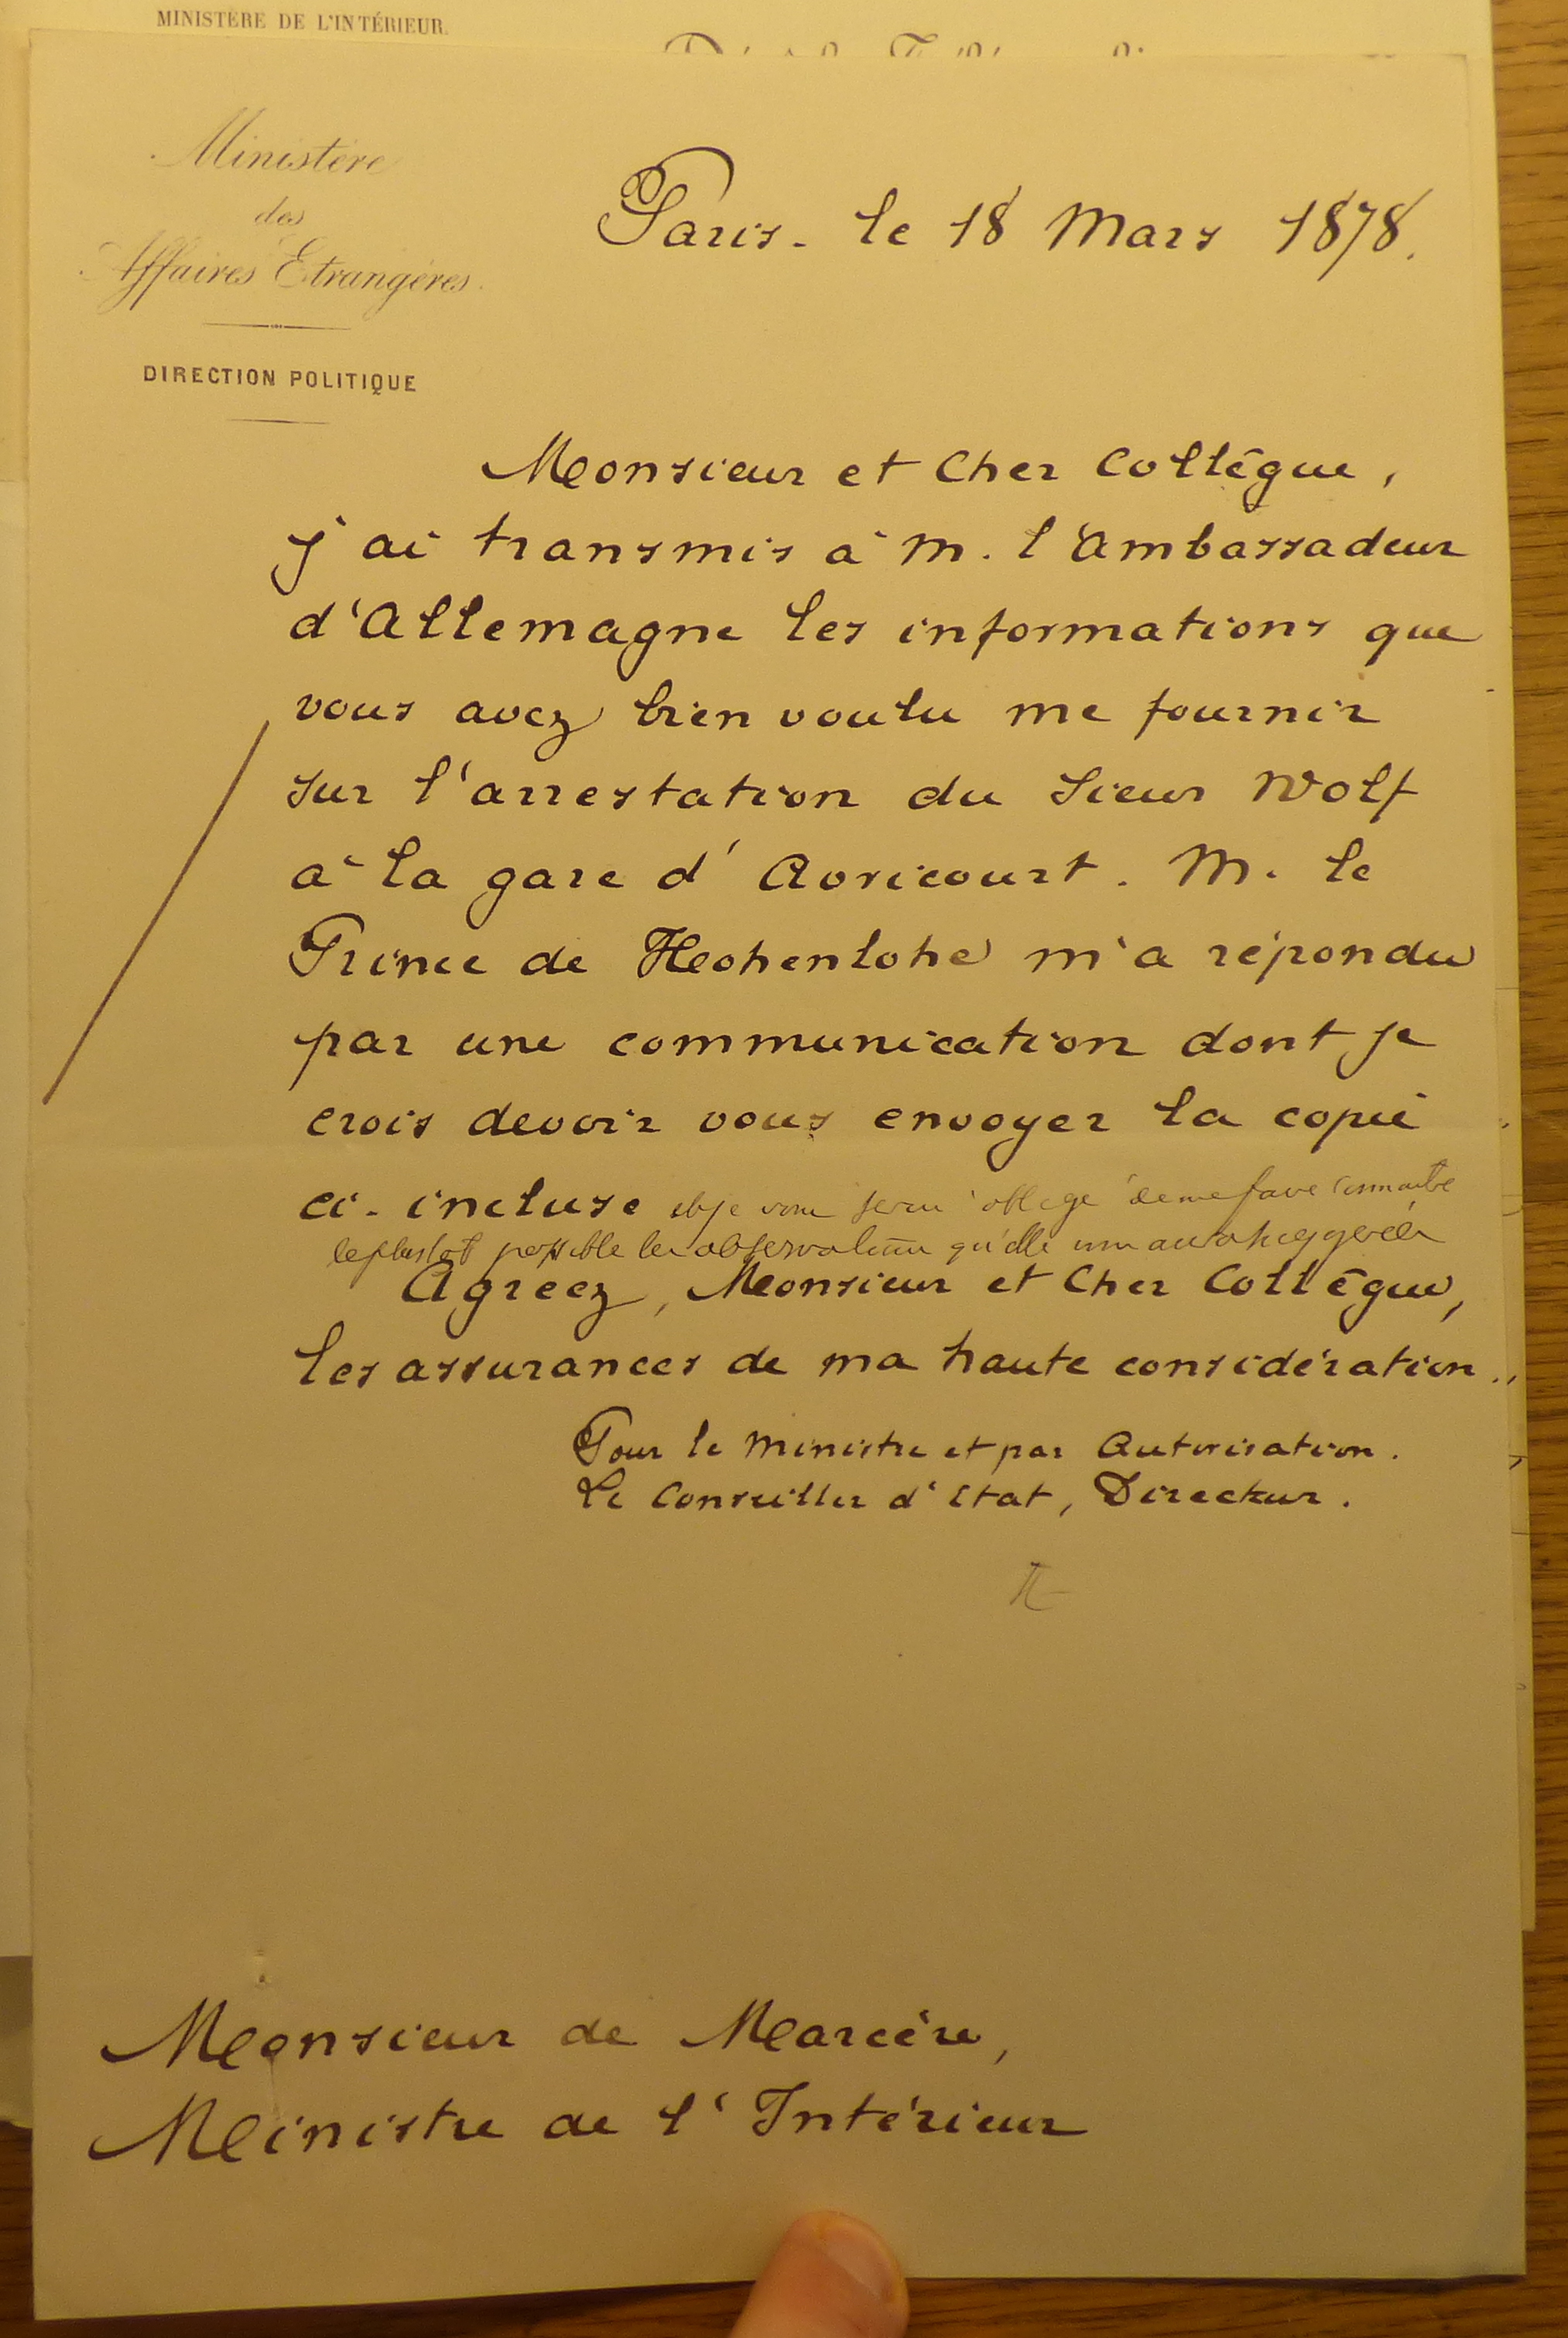 MINISTÈRE DE L'INTÉRIEUR.
Ministère
des
Affaires Etrangères.
DIRECTION POLITIQUE
Paris. le 18 Mars 1878.
Monsieur et Cher Collègue,
j'ai transmis à M. l'Ambassadeur
d'Allemagne les informations que
vous avez bien voulu me fournir
sur l'arrestation du Sieur Wolf
à la gare d'Avricourt. M. le
Prince de Hohenlohe m'a répondu
par une communication dont je
crois devoir vous envoyer la copie
ci-incluse et je vous serai obligé de me faire connaître
le plus tot possible les observations qu'elle vous aura suggérées
Agréez, Monsieur et Cher Collègue,
les assurances de ma haute considération.
Pour le Ministre et par Autorisation.
Le Conseiller d'Etat, Directeur.
Monsieur de Marcère,
Ministre de l'Intérieur